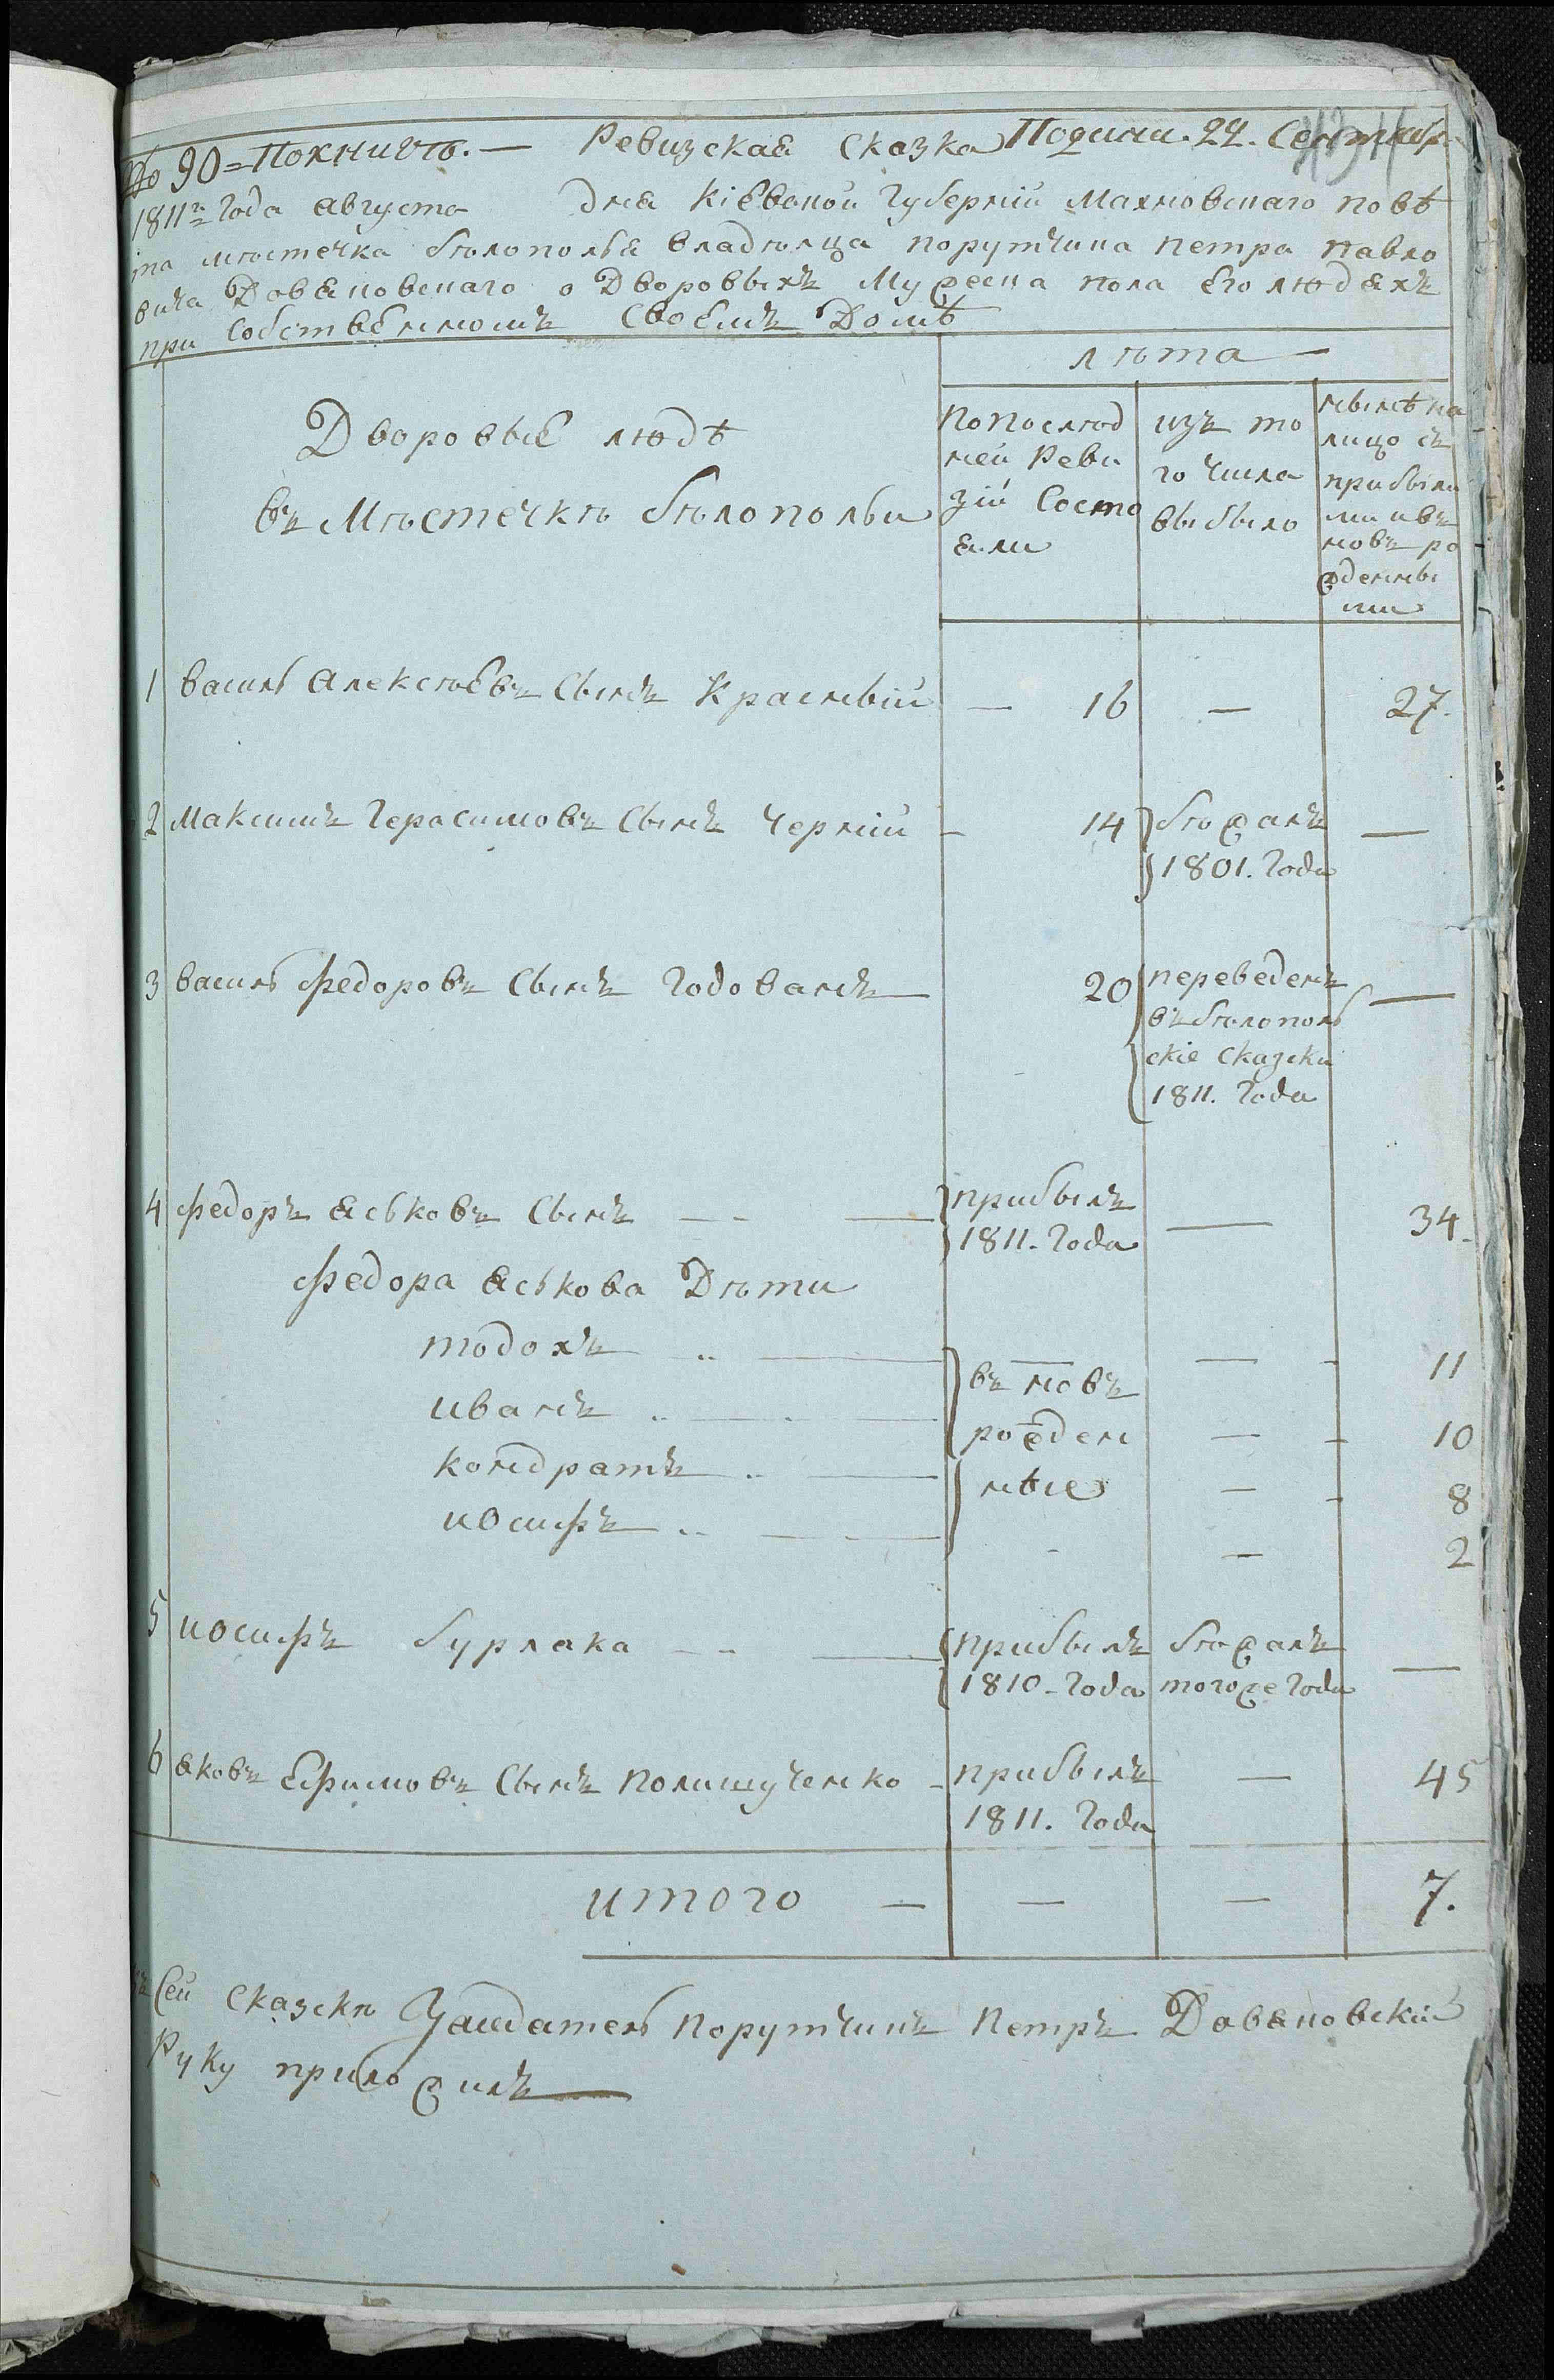 № 90 = По книге. — Ревизская Сказка Подпин. 22. Сентября
1811го Года августа дня Кіевской Губерніи Махновскаго повѣ
та мѣстечка бѣлополья владѣлца порутчика петра павло
вича Довяковскаго о Дворовыхъ Мужеска пола его людяхъ
при Собственномъ Своемъ Домѣ
лѣта —
Дворовые людѣ
въ Мѣстечкѣ бѣлопольи
попослѣд
ней Реви
зіи Состо
яли
изъ то
го числа
выбыло
нынѣ на
лицо съ
прибыли
ми и въ
новъ ро
жденны
ми
1 василь алексѣевъ Сынъ Красный — 16 — 27.
2 максимъ Герасимовъ Сынъ черній — 14 бѣжалъ —
1801. Года
3 василь федоровъ Сынъ Годованъ 20 переведенъ —
въ бѣлополь
скіе сказски
1811. Года
4 федоръ яськовъ Сынъ — — прибылъ — 34.
1811. Года
федора яськова Дѣти
тодохъ — — 11
иванъ — въ новъ — 10
кондратъ — рожден — 8
иосифъ — ные — 2
5 иосифъ бурлака — прибылъ бѣжалъ —
1810. Года того же Года
6 яковъ Ефимовъ Сынъ полищученко — прибылъ — 45
1811. Года
итого — — — 7.
къ Сей сказскѣ порутчикъ Петръ Довяковскій
Руку приложилъ